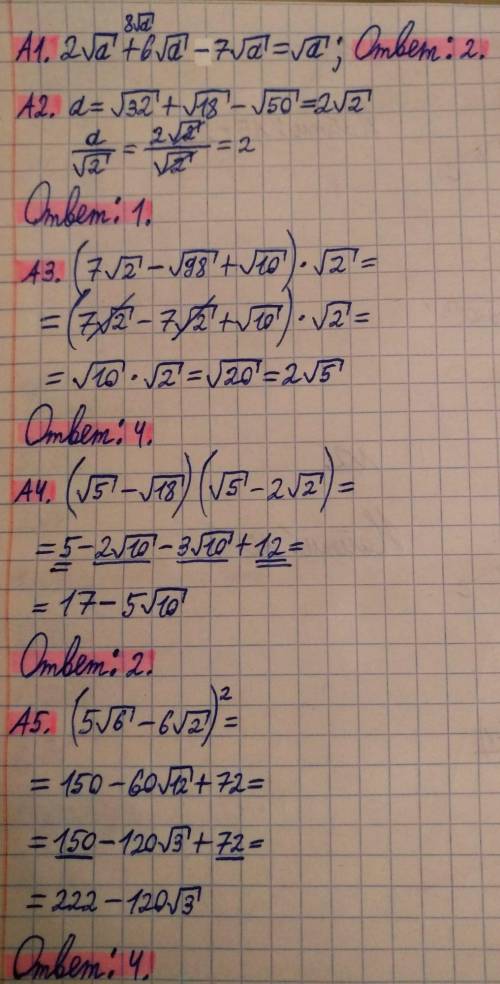 8√a
A1. 2√a + 6√a - 7√a = √a; Ответ: 2.
A2. a = √32 + √18 - √50 = 2√2
a/√2 = 2√2/√2 = 2
Ответ: 1.
A3. (7√2 - √98 + √10) · √2 =
= (7√2 - 7√2 + √10) · √2 =
= √10 · √2 = √20 = 2√5
Ответ: 4.
A4. (√5 - √18)(√5 - 2√2) =
= 5 - 2√10 - 3√10 + 12 =
= 17 - 5√10
Ответ: 2.
A5. (5√6 - 6√2)² =
= 150 - 60√12 + 72 =
= 150 - 120√3 + 72 =
= 222 - 120√3
Ответ: 4.